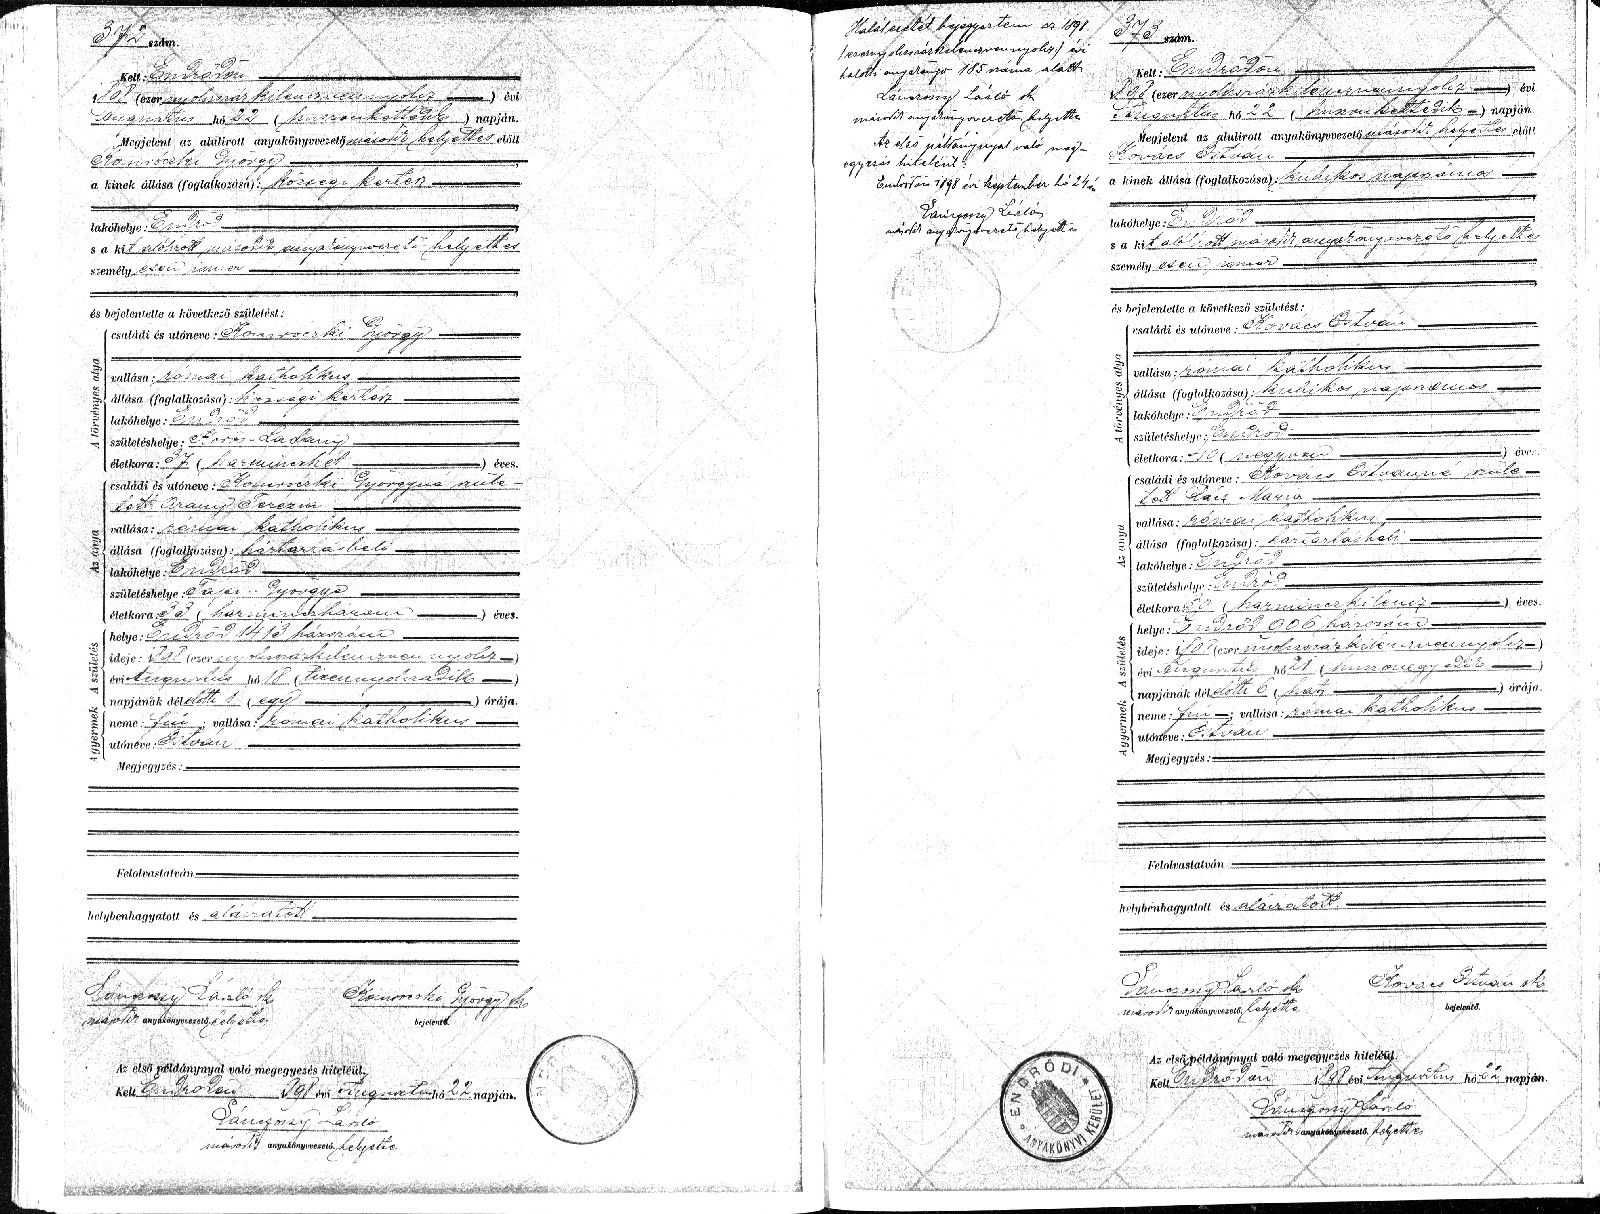 372 szám.
Kelt: Endrődön
1898 (ezer nyolcszázkilencvennyolcz) évi
Augusztus hó 22 (huszonkettedik) napján.
Megjelent az alulirott anyakönyvezető második helyettes előtt
György
a kinek állása (foglalkozása): községi kertész
lakóhelye: Endrőd
s a kit alólirott második anyakönyvvezető helyettes
személyesen ismer
és bejelentette a következő születést:
A törvényes atya
családi és utóneve: György
vallása: római katholikus
állása (foglalkozása): községi kertész
lakóhelye: Endrőd
születéshelye: Körös-Ladány
életkora: 37 (harminczhét) éves.
Az anya
családi és utóneve: Györgyné szüle-
tett Arany Terézia
vallása: római katholikus
állása (foglalkozása): háztartásbeli
lakóhelye: Endrőd
születéshelye: Györgye
életkora: 33 (harminczhárom) éves.
A születés
helye: Endrőd 1413 házszám
ideje: 1898 (ezer nyolcszázkilencvennyolcz)
évi Augusztus hó 18 (tizennyolczadik)
napjának délelőtti 1 (egy) órája.
A gyermek
neme: fiú; vallása: római katholikus
utóneve: István
Megjegyzés:
Felolvastatván
helybenhagyatott és aláiratott
László sk
második anyakönyvvezető helyettes
György sk
bejelentő.
Az első példánynyal való megegyezés hiteléül.
Kelt Endrődön 1898 évi Augusztus hó 22 napján.
László
második anyakönyvvezető helyettes
Halálesetét bejegyeztem az 1898
(ezernyolcszázkilencvennyolcz) évi
halotti anyakönyv 185 száma alatt
László sk
második anyakönyvvezető helyettes
Az első példánynyal való meg-
egyezés hiteléül:
Endrődön 1898 évi szeptember hó 24én
László
második anyakönyvvezető helyettes
373 szám.
Kelt: Endrődön
1898 (ezer nyolcszázkilencvennyolcz) évi
Augusztus hó 22 (huszonkettedik) napján.
Megjelent az alulirott anyakönyvvezető második helyettes előtt
Kovács István
a kinek állása (foglalkozása): kubikos napszámos
lakóhelye: Endrőd
s a kit alólirott második anyakönyvvezető helyettes
személyesen ismer
és bejelentette a következő születést:
A törvényes atya
családi és utóneve: Kovács István
vallása: római katholikus
állása (foglalkozása): kubikos, napszámos
lakóhelye: Endrőd
születéshelye: Endrőd
életkora: 40 (negyven) éves.
Az anya
családi és utóneve: Kovács Istvánné szüle-
tett Mária
vallása: római katholikus
állása (foglalkozása): háztartásbeli
lakóhelye: Endrőd
születéshelye: Endrőd
életkora: 39 (harminczkilencz) éves.
A születés
helye: Endrőd 906 házszám
ideje: 1898 (ezer nyolcszázkilencvennyolcz)
évi Augusztus hó 21 (huszonegyedik)
napjának délelőtti 6 (hat) órája.
A gyermek
neme: fiú; vallása: római katholikus
utóneve: István
Megjegyzés:
Felolvastatván
helybenhagyatott és aláiratott
László sk
második anyakönyvvezető helyettes
Kovács István sk
bejelentő.
Az első példánynyal való megegyezés hiteléül.
Kelt Endrődön 1898 évi Augusztus hó 22 napján.
László
második anyakönyvvezető helyettes
ENDRŐDI
ANYAKÖNYVI KERÜLET